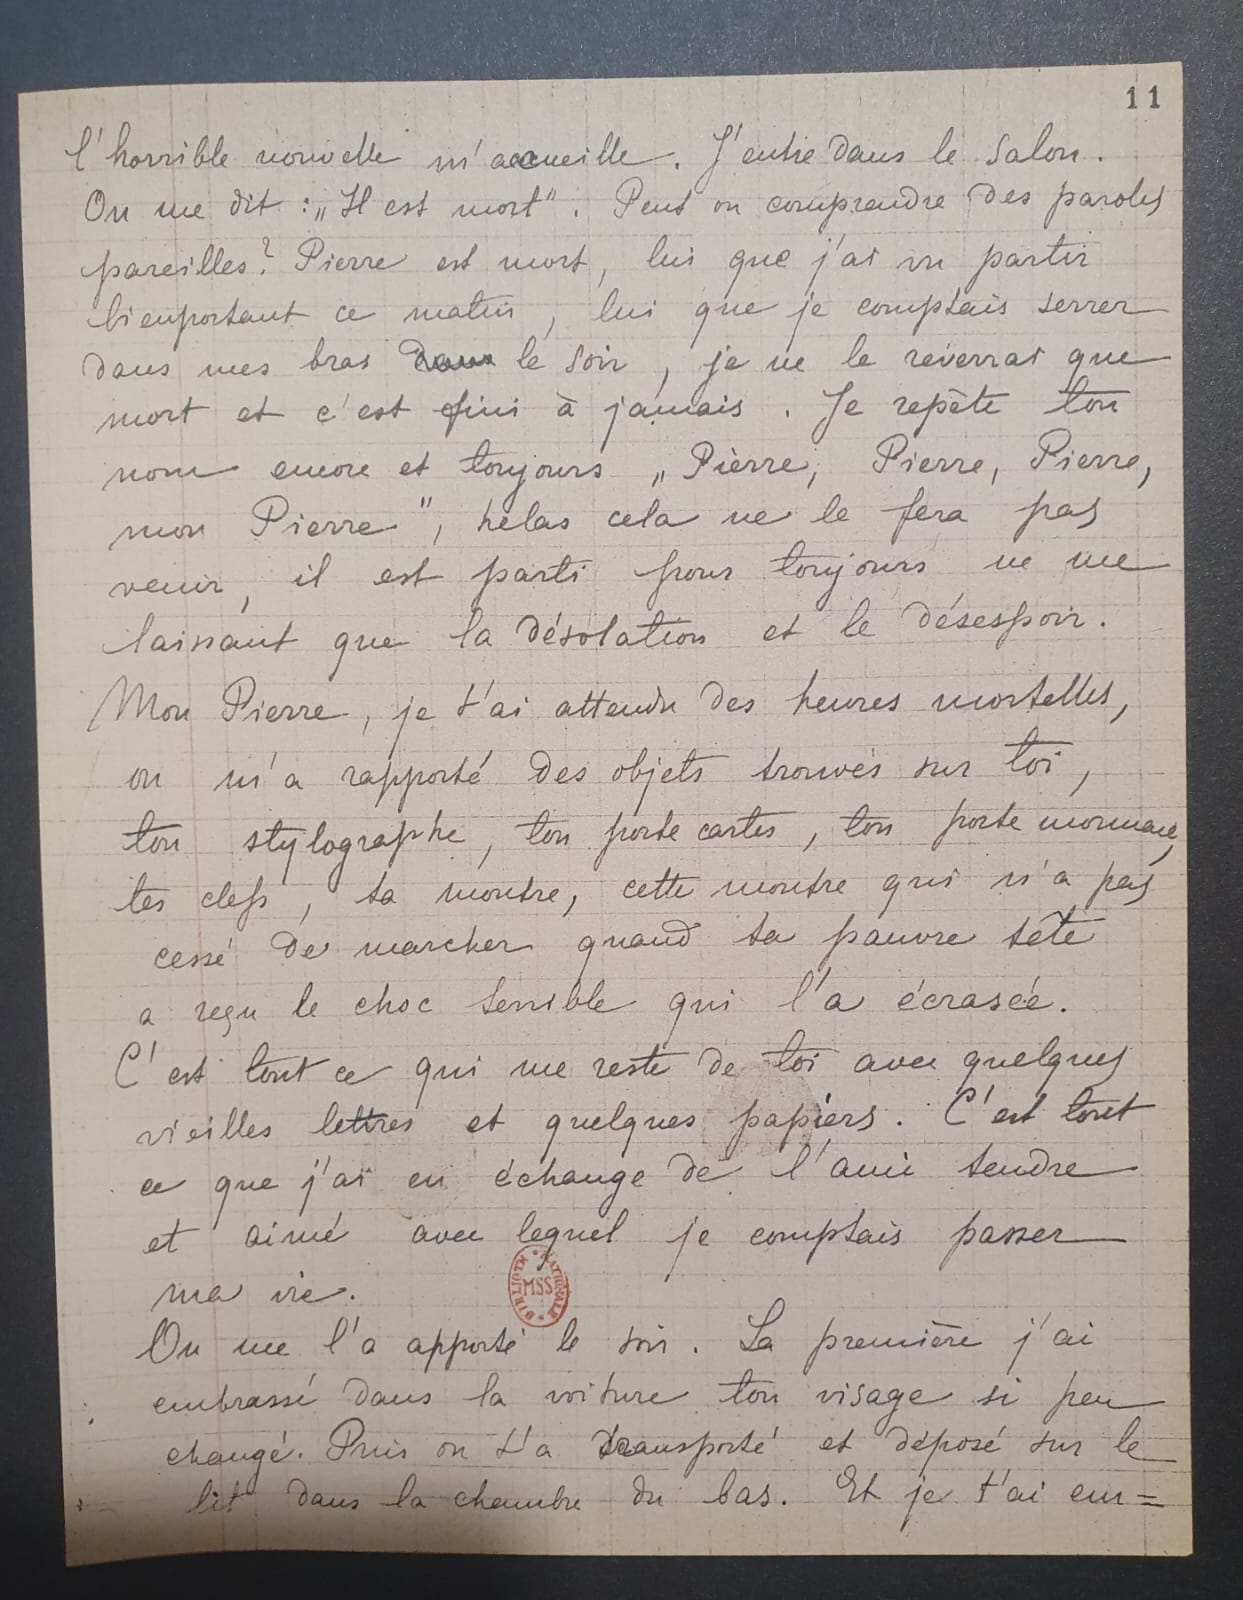 11
l'horrible nouvelle m'accueille. J'entre dans le salon.
On me dit : „Il est mort". Peut on comprendre des paroles
pareilles? Pierre est mort, lui que j'ai vu partir
bienportant ce matin, lui que je comptais serrer
dans mes bras le soir, je ne le reverrai que
mort et c'est fini à jamais. Je repète ton
nom encore et toujours „Pierre, Pierre, Pierre,
mon Pierre", helas cela ne le fera pas
venir, il est parti pour toujours ne me
laissant que la désolation et le désespoir.
Mon Pierre, je t'ai attendu des heures mortelles,
on m'a rapporté des objets trouvés sur toi,
ton stylographe, ton porte cartes, ton porte monnaie,
tes clefs, ta montre, cette montre qui n'a pas
cessé de marcher quand ta pauvre tête
a reçu le choc terrible qui l'a écrasée.
C'est tout ce qui me reste de toi avec quelques
vieilles lettres et quelques papiers. C'est tout
ce que j'ai en échange de l'ami tendre
et aimé avec lequel je comptais passer
ma vie.
BIBLIOTH. NATIONALE MSS
On me l'a apporté le soir. La première j'ai
embrassé dans la voiture ton visage si peu
changé. Puis on t'a transporté et déposé sur le
lit dans la chambre du bas. Et je t'ai em=